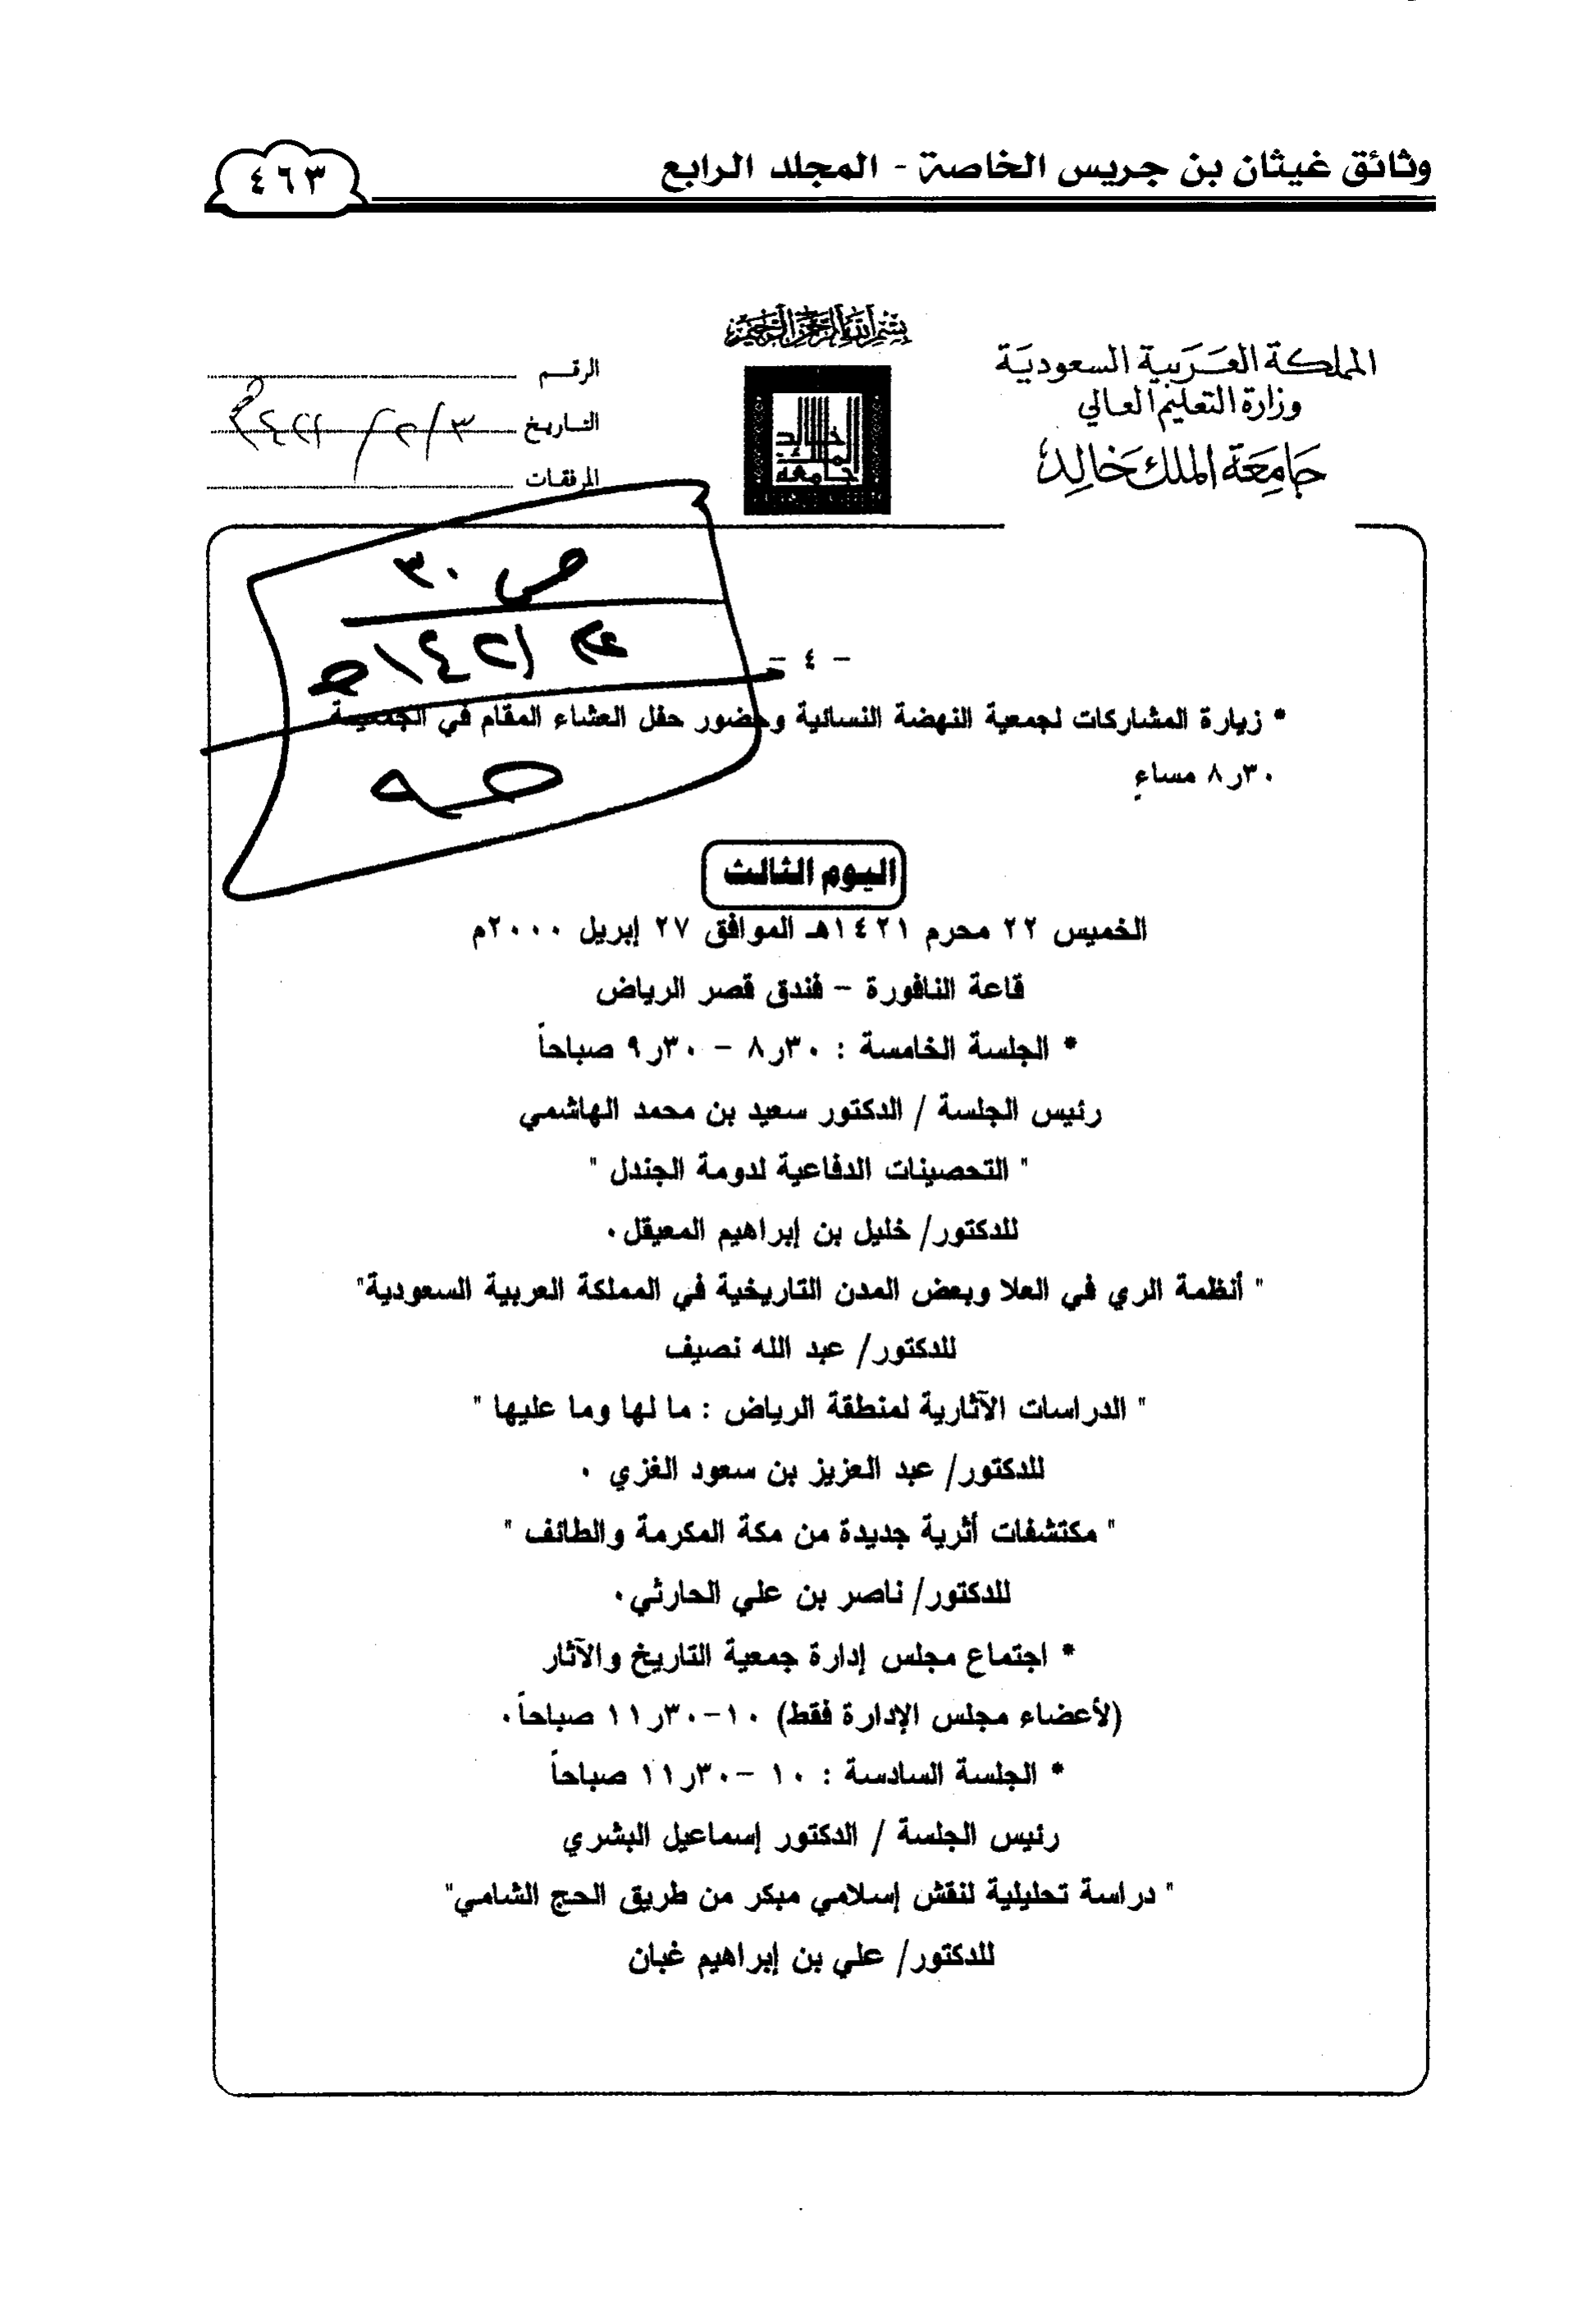 وثائق غيثان بن جريس الخاصة - المجلد الرابع
٤٦٣
بسم الله الرحمن الرحيم
المملكة العربية السعودية
وزارة التعليم العالي
جامعة الملك خالد
جامعة الملك خالد
الرقم
التاريخ ٣/٢/
المرفقات
ص ٣٠
١٤٢١هـ
- ٤ -
* زيارة المشاركات لجمعية النهضة النسائية وحضور حفل العشاء المقام في الجمعية
٨ر٣٠ مساءٍ
اليوم الثالث
الخميس ٢٢ محرم ١٤٢١هـ الموافق ٢٧ إبريل ٢٠٠٠م
قاعة النافورة - فندق قصر الرياض
* الجلسة الخامسة : ٨ر٣٠ - ٩ر٣٠ صباحاً
رئيس الجلسة / الدكتور سعيد بن محمد الهاشمي
" التحصينات الدفاعية لدومة الجندل "
للدكتور/ خليل بن إبراهيم المعيقل.
" أنظمة الري في العلا وبعض المدن التاريخية في المملكة العربية السعودية"
للدكتور/ عبد الله نصيف
" الدراسات الآثارية لمنطقة الرياض : ما لها وما عليها "
للدكتور/ عبد العزيز بن سعود الغزي .
" مكتشفات أثرية جديدة من مكة المكرمة والطائف "
للدكتور/ ناصر بن علي الحارثي.
* اجتماع مجلس إدارة جمعية التاريخ والآثار
(لأعضاء مجلس الإدارة فقط) ١٠-١١ر٣٠ صباحاً.
* الجلسة السادسة : ١٠ -١١ر٣٠ صباحاً
رئيس الجلسة / الدكتور إسماعيل البشري
" دراسة تحليلية لنقش إسلامي مبكر من طريق الحج الشامي"
للدكتور/ علي بن إبراهيم غبان